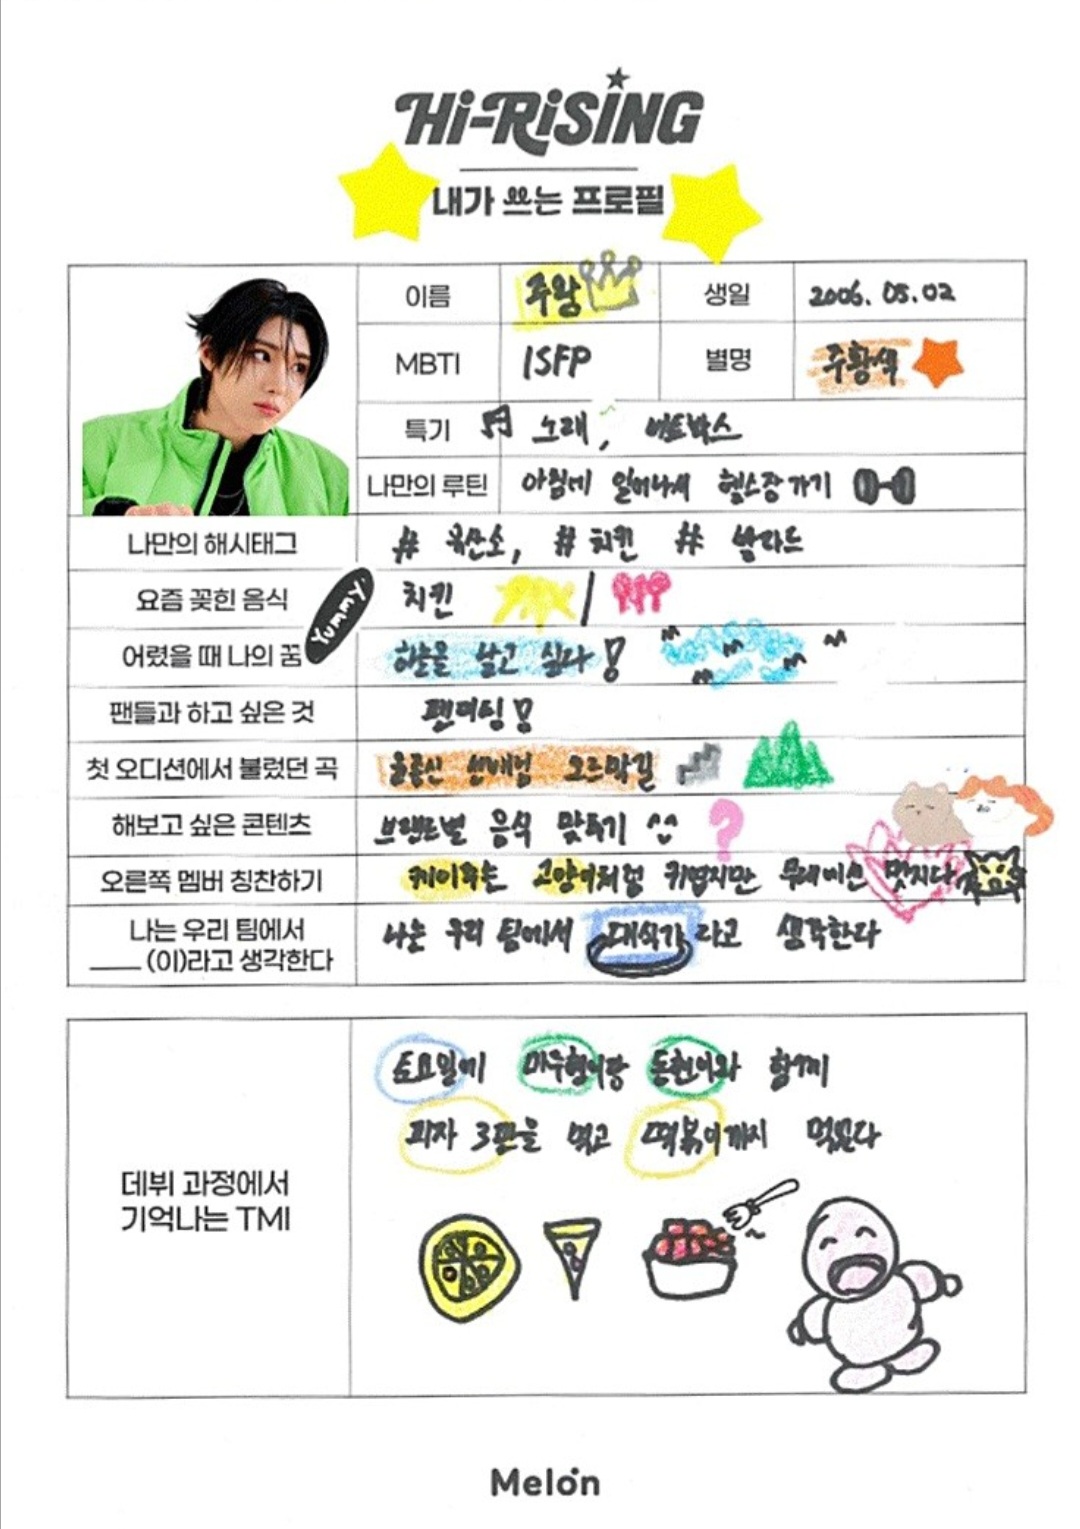 Hi-RiSiNG
내가 쓰는 프로필
이름 주왕 생일 2006. 05. 02
MBTI ISFP 별명 주황색
특기 노래, 비트박스
나만의 루틴 아침에 일어나서 헬스장 가기
나만의 해시태그 # 유산소, # 치킨 # 발라드
요즘 꽂힌 음식 치킨 /
Yummy
어렸을 때 나의 꿈 하늘을 날고 싶다!
팬들과 하고 싶은 것 팬미팅!
첫 오디션에서 불렀던 곡 윤종신 선배님 오르막길
해보고 싶은 콘텐츠 브랜드별 음식 맞추기 ^^ ?
오른쪽 멤버 칭찬하기 케이주는 고양이처럼 귀엽지만 무대에선 멋지다
나는 우리 팀에서 나는 우리 팀에서 대식가라고 생각한다
____ (이)라고 생각한다
토요일에 마우형이랑 동현이와 함께
피자 3판을 먹고 떡볶이까지 먹었다
데뷔 과정에서
기억나는 TMI
Melon